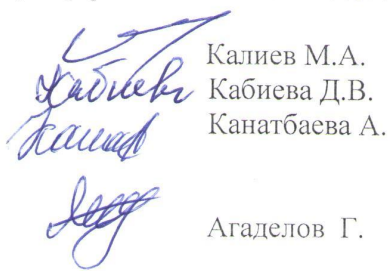 Калиев М.А.
Кабиева Кабиева Д.В.
Канатбаева А.
Агаделов Г.